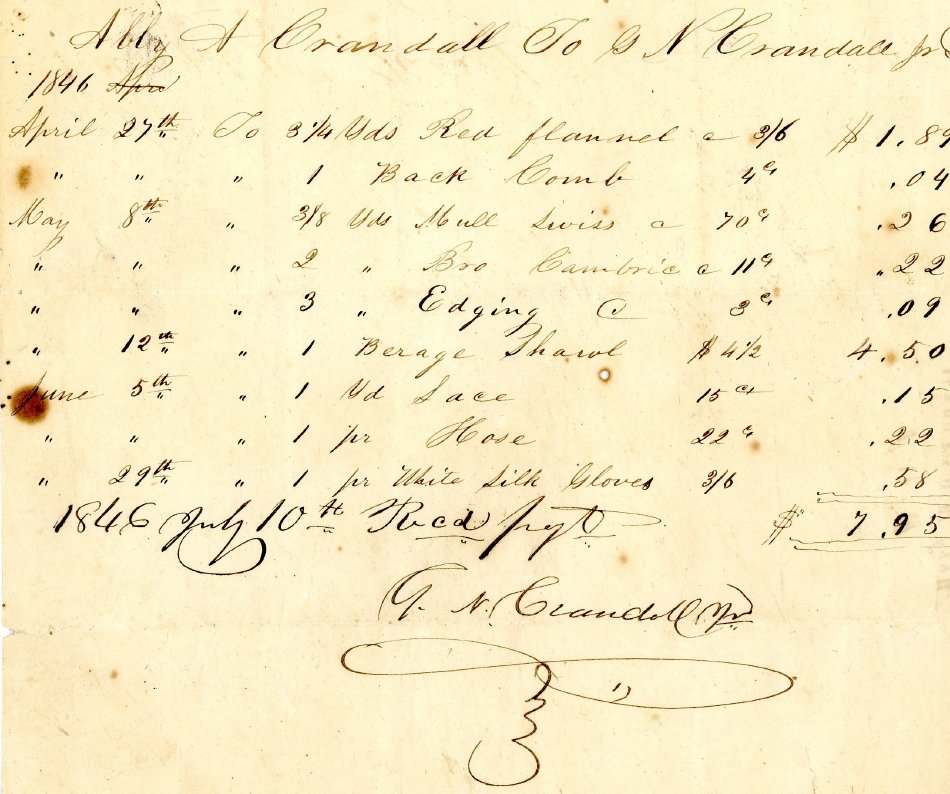 Abby A Crandall To G N Crandall jr
1846 Apri
April 27th To 3 1/4 Yds Red flannel c 3/6 $1.89
" " " 1 Back Comb 4c .04
May 8th " 3/8 Yds Mull Swiss c 70c .26
" " " 2 " Bro Cambric c 11c .22
" " " 3 " Edging C 3c .09
" 12th " 1 Berage Shawl $4 1/2 4.50
June 5th " 1 Yd Lace 15cts .15
" " " 1 pr Hose 22c .22
" 29th " 1 pr White Silk Gloves 3/6 .58
1846 July 10th Recd payt $ 7.95
G. N. Crandall Jr